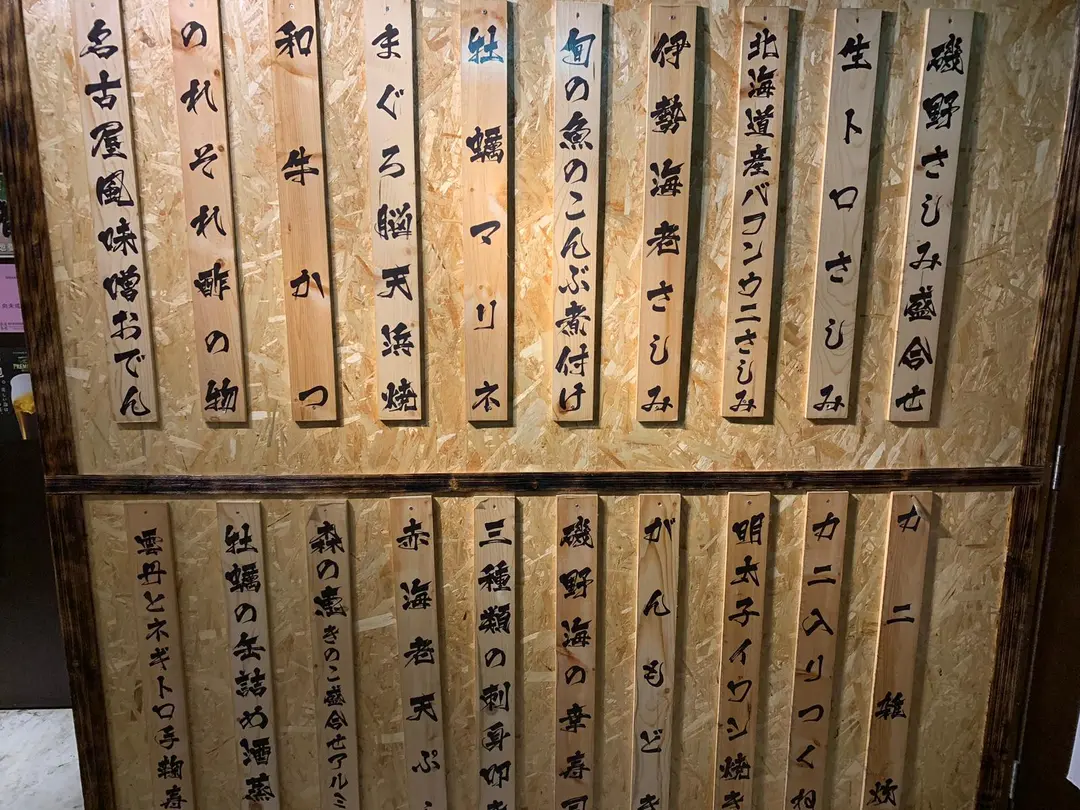 磯野さしみ盛合せ
生トロさしみ
北海道産バフンウニさしみ
伊勢海老さしみ
旬の魚のこんぶ煮付け
牡蠣マリネ
まぐろ脳天浜焼
和牛かつ
のれそれ酢の物
名古屋風味噌おでん
カニ雑炊
カニ入りつくね
明太子イワシ焼き
がんもどき
磯野海の幸寿司
三種類の刺身卯
赤海老天ぷ
森の恵きのこ盛合せアルミ
牡蠣の缶詰め酒蒸
雲丹とネギトロ手鞠寿